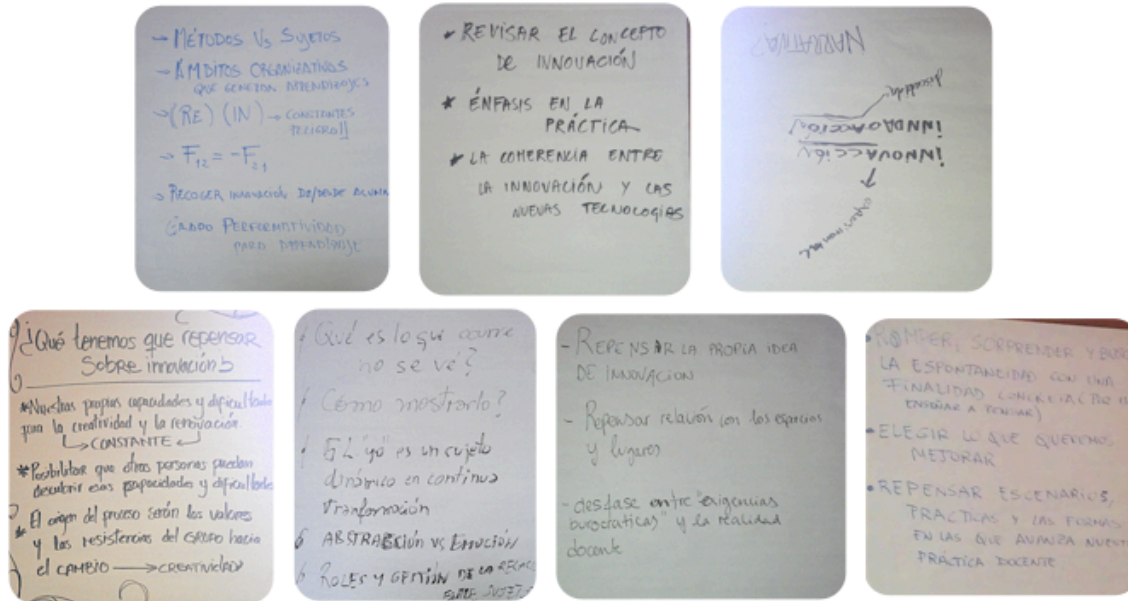 → MÉTODOS VS SUJETOS
→ ÁMBITOS ORGANIZATIVOS
QUE GENERAN APRENDIZAJES
→ (RE) (IN) → CONSTANTES
PELIGRO!!
→ F12 = -F21
→ RECOGER INNOVACIÓN DE/DESDE
GRADO PERFORMATIVIDAD
PARA APRENDIZAJE
REVISAR EL CONCEPTO
DE INNOVACIÓN
* ÉNFASIS EN LA
PRÁCTICA
* LA COHERENCIA ENTRE
LA INNOVACIÓN Y LAS
NUEVAS TECNOLOGÍAS
experimental
INNOVACCIÓN
discutida
NARRATIVA?
¿Qué tenemos que repensar
Sobre innovación?
*Nuestras propias capacidades y dificultades
para la creatividad y la renovación.
CONSTANTE
*Posibilitar que otras personas puedan
descubrir esas capacidades y dificultades
* El origen del proceso serán los valores
y las resistencias del GRUPO hacia
el CAMBIO → CREATIVIDAD
Qué es lo que ocurre
no se vé?
Cómo mostrarlo?
EL "yo" es un sujeto
dinámico en continua
transformación
ABSTRACCIÓN VS EMOCIÓN
ROLES Y GESTIÓN DE LA
ENTRE SUJETOS
- REPENSAR LA PROPIA IDEA
DE INNOVACION
- Repensar relación con los espacios
y lugares
- desfase entre "exigencias
burocráticas" y la realidad
docente
• ROMPER, SORPRENDER Y
LA ESPONTANEIDAD CON UNA
FINALIDAD CONCRETA
ENSEÑAR A PENSAR)
• ELEGIR LO QUE QUEREMOS
MEJORAR
• REPENSAR ESCENARIOS,
PRACTICAS Y LAS FORMAS
EN LAS QUE AVANZA
PRÁCTICA DOCENTE